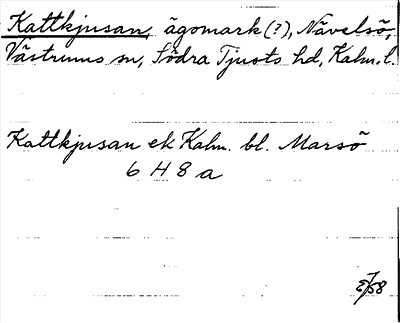 Kattkjusan, ägomark (?), Nävelsö,
Västrums sn, Södra Tjusts hd, Kalm. l.
Kattkjusan ek Kalm. bl. Marsö
6 H 8 a